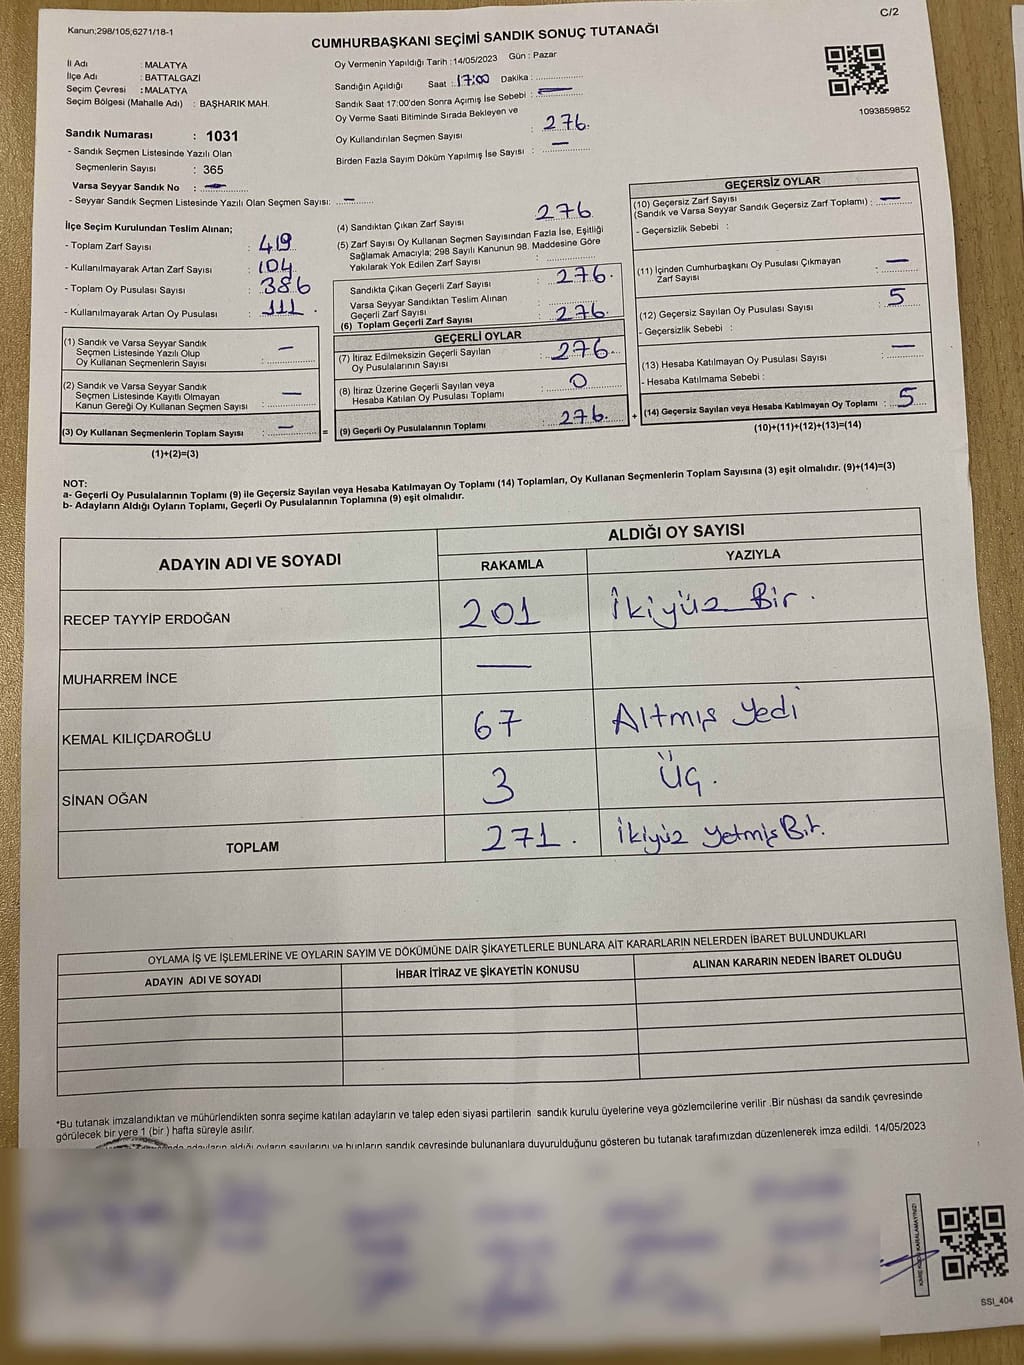 C/2
Kanun;298/105;6271/18-1
CUMHURBAŞKANI SEÇİMİ SANDIK SONUÇ TUTANAĞI
İl Adı : MALATYA
İlçe Adı : BATTALGAZİ
Seçim Çevresi : MALATYA
Seçim Bölgesi (Mahalle Adı) : BAŞHARIK MAH.
Sandık Numarası : 1031
- Sandık Seçmen Listesinde Yazılı Olan
Seçmenlerin Sayısı : 365
Varsa Seyyar Sandık No : —
- Seyyar Sandık Seçmen Listesinde Yazılı Olan Seçmen Sayısı: —
Oy Vermenin Yapıldığı Tarih :14/05/2023 Gün : Pazar
Sandığın Açıldığı Saat : 17:00 Dakika :
Sandık Saat 17:00'den Sonra Açımış İse Sebebi : —
Oy Verme Saati Bitiminde Sırada Bekleyen ve
Oy Kullandırılan Seçmen Sayısı : 276.
Birden Fazla Sayım Döküm Yapılmış İse Sayısı : —
1093859852
İlçe Seçim Kurulundan Teslim Alınan;
- Toplam Zarf Sayısı : 419
- Kullanılmayarak Artan Zarf Sayısı : 104
- Toplam Oy Pusulası Sayısı : 386
- Kullanılmayarak Artan Oy Pusulası : 111.
(1) Sandık ve Varsa Seyyar Sandık
Seçmen Listesinde Yazılı Olup
Oy Kullanan Seçmenlerin Sayısı : —
(2) Sandık ve Varsa Seyyar Sandık
Seçmen Listesinde Kayıtlı Olmayan
Kanun Gereği Oy Kullanan Seçmen Sayısı : —
(3) Oy Kullanan Seçmenlerin Toplam Sayısı : — =
(1)+(2)=(3)
(4) Sandıktan Çıkan Zarf Sayısı : 276
(5) Zarf Sayısı Oy Kullanan Seçmen Sayısından Fazla İse, Eşitliği
Sağlamak Amacıyla; 298 Sayılı Kanunun 98. Maddesine Göre
Yakılarak Yok Edilen Zarf Sayısı :
Sandıkta Çıkan Geçerli Zarf Sayısı : 276.
Varsa Seyyar Sandıktan Teslim Alınan
Geçerli Zarf Sayısı :
(6) Toplam Geçerli Zarf Sayısı : 276.
GEÇERLİ OYLAR
(7) İtiraz Edilmeksizin Geçerli Sayılan
Oy Pusulalarının Sayısı : 276.
(8) İtiraz Üzerine Geçerli Sayılan veya
Hesaba Katılan Oy Pusulası Toplamı : 0
(9) Geçerli Oy Pusulalarının Toplamı : 276. +
GEÇERSİZ OYLAR
(10) Geçersiz Zarf Sayısı
(Sandık ve Varsa Seyyar Sandık Geçersiz Zarf Toplamı) : —
- Geçersizlik Sebebi :
(11) İçinden Cumhurbaşkanı Oy Pusulası Çıkmayan
Zarf Sayısı : —
(12) Geçersiz Sayılan Oy Pusulası Sayısı : 5
- Geçersizlik Sebebi :
(13) Hesaba Katılmayan Oy Pusulası Sayısı : —
- Hesaba Katılmama Sebebi :
(14) Geçersiz Sayılan veya Hesaba Katılmayan Oy Toplamı : 5
(10)+(11)+(12)+(13)=(14)
NOT:
a- Geçerli Oy Pusulalarının Toplamı (9) ile Geçersiz Sayılan veya Hesaba Katılmayan Oy Toplamı (14) Toplamları, Oy Kullanan Seçmenlerin Toplam Sayısına (3) eşit olmalıdır. (9)+(14)=(3)
b- Adayların Aldığı Oyların Toplamı, Geçerli Oy Pusulalarının Toplamına (9) eşit olmalıdır.
ADAYIN ADI VE SOYADI
ALDIĞI OY SAYISI
RAKAMLA YAZIYLA
RECEP TAYYİP ERDOĞAN 201 İkiyüz Bir.
MUHARREM İNCE —
KEMAL KILIÇDAROĞLU 67 Altmış Yedi
SİNAN OĞAN 3 Üç.
TOPLAM 271. İkiyüz Yetmiş Bir.
OYLAMA İŞ VE İŞLEMLERİNE VE OYLARIN SAYIM VE DÖKÜMÜNE DAİR ŞİKAYETLERLE BUNLARA AİT KARARLARIN NELERDEN İBARET BULUNDUKLARI
ADAYIN ADI VE SOYADI İHBAR İTİRAZ VE ŞİKAYETİN KONUSU ALINAN KARARIN NEDEN İBARET OLDUĞU
*Bu tutanak imzalandıktan ve mühürlendikten sonra seçime katılan adayların ve talep eden siyasi partilerin sandık kurulu üyelerine veya gözlemcilerine verilir .Bir nüshası da sandık çevresinde
görülecek bir yere 1 (bir ) hafta süreyle asılır.
adayların aldığı oyların sayılarını ve bunların sandık çevresinde bulunanlara duyurulduğunu gösteren bu tutanak tarafımızdan düzenlenerek imza edildi. 14/05/2023
KAREKODU KARALAMAYINIZ!
SSI_404